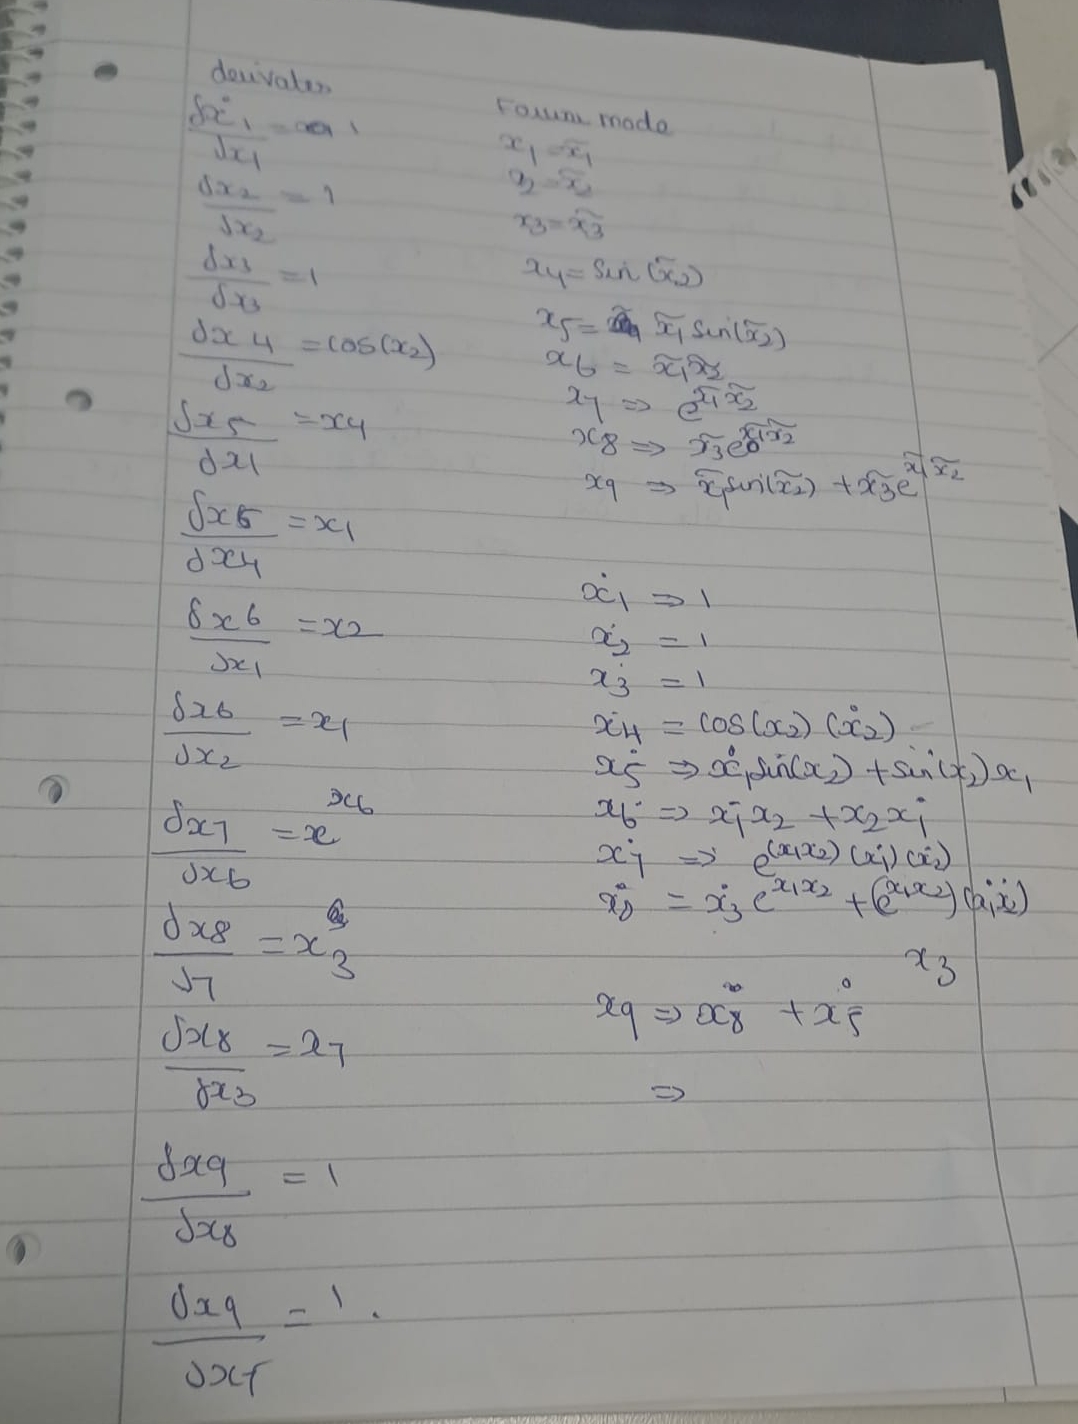 derivates
δẋ1/δx1 = 1
δx2/δx2 = 1
δx3/δx3 = 1
δx4/δx2 = cos(x2)
δx5/δx1 = x4
δx5/δx4 = x1
δx6/δx1 = x2
δx6/δx2 = x1
δx7/δx6 = x^x6
δx8/δ7 = x3
δx8/δx3 = x7
δx9/δx8 = 1
δx9/δx5 = 1.
mode
x1 = x̃1
x̃2
x3 = x̃3
x4 = Sin(x̃2)
x5 = x̃1 sin(x̃2)
x6 = x̃1x̃2
x7 ⇒ e^x̃1x̃2
x8 ⇒ x̃3e^x̃1x̃2
x9 ⇒ x̃1sin(x̃2) + x̃3e^x̃1x̃2
ẋ1 ⇒ 1
ẋ2 = 1
ẋ3 = 1
ẋ4 = cos(x2) (ẋ2)
ẋ5 ⇒ ẋ1sin(x2) + sin(x2)x1
ẋ6 ⇒ ẋ1x2 + x2ẋ1
ẋ7 ⇒ e^(x1x2) (ẋ1)(ẋ2)
ẋ8 = ẋ3e^x1x2 + (e^x1x2)(ẋ1ẋ2)
x3
x9 ⇒ ẋ8 + ẋ5
⇒